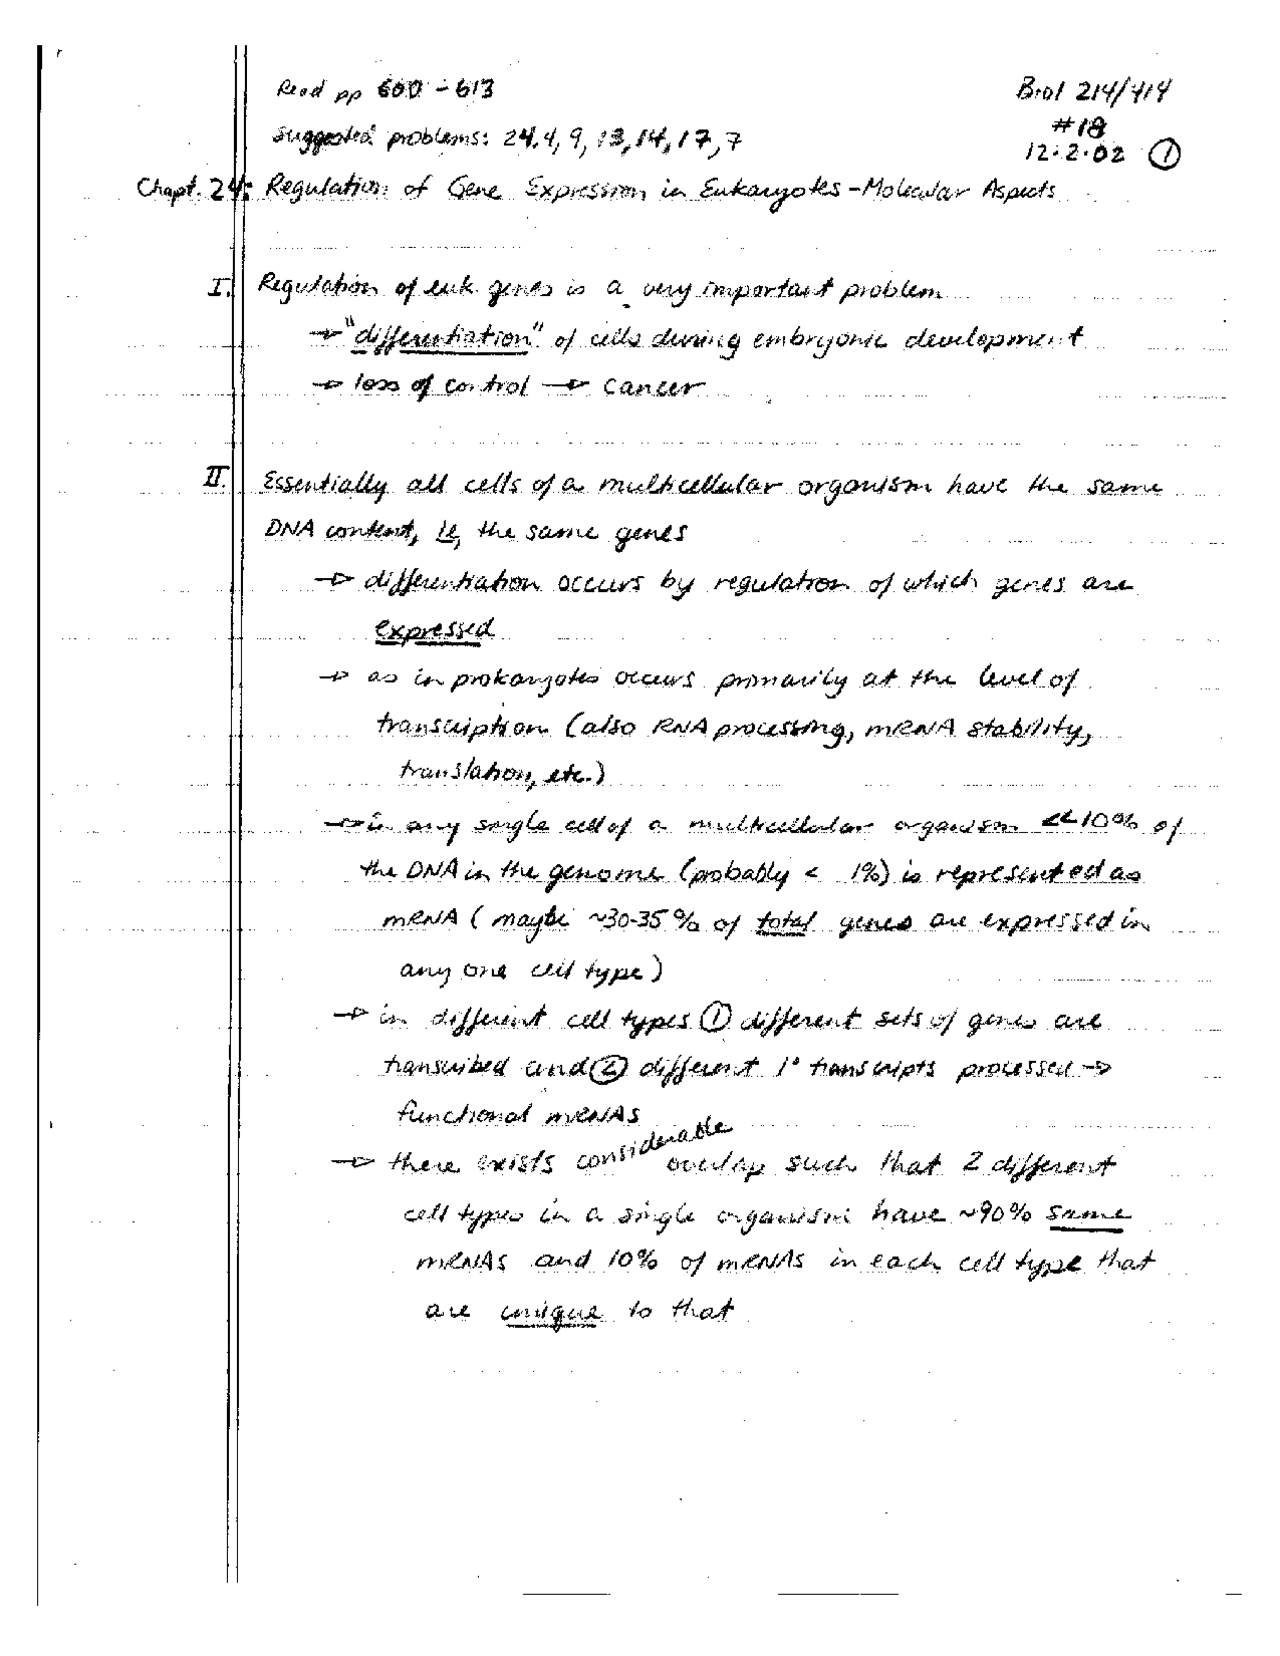 Read pp 600 - 613
Biol 214/414
#18
Suggested problems: 24.4, 9, 13, 14, 17, 7
12.2.02 ①
Chapt. 24: Regulation of Gene Expression in Eukaryotes - Molecular Aspects
I. Regulation of euk genes is a very important problem
→ "differentiation" of cells during embryonic development
→ loss of control → cancer
II. Essentially all cells of a multicellular organism have the same
DNA content, ie, the same genes
→ differentiation occurs by regulation of which genes are
expressed
→ as in prokaryotes occurs primarily at the level of
transcription (also RNA processing, mRNA stability,
translation, etc.)
→ in any single cell of a multicellular organism <<10% of
the DNA in the genome (probably < 1%) is represented as
mRNA (maybe ~30-35% of total genes are expressed in
any one cell type)
→ in different cell types ① different sets of genes are
transcribed and ② different 1° transcripts processed →
functional mRNAs
→ there exists considerable overlap such that 2 different
cell types in a single organism have ~90% same
mRNAs and 10% of mRNAs in each cell type that
are unique to that